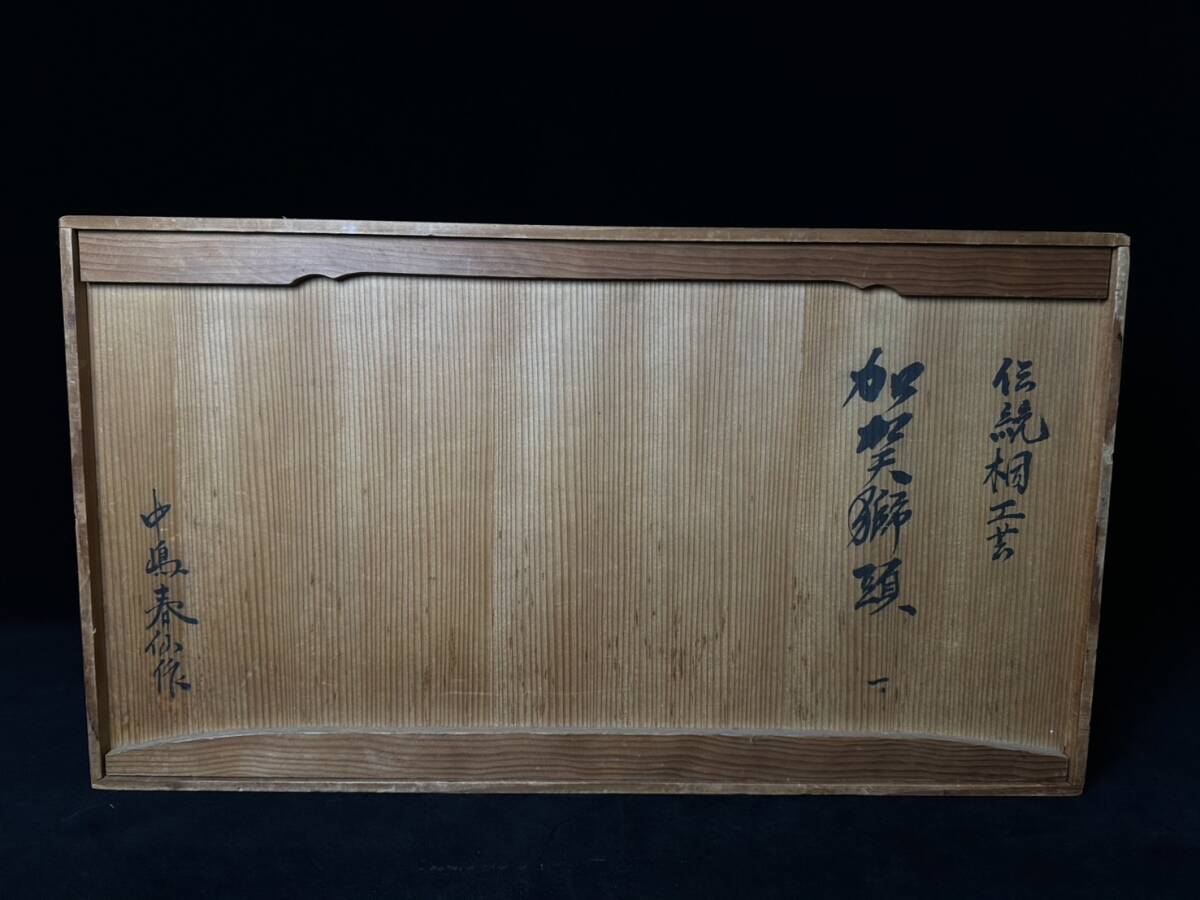 伝統桐工芸
加賀獅頭
中島春仙作